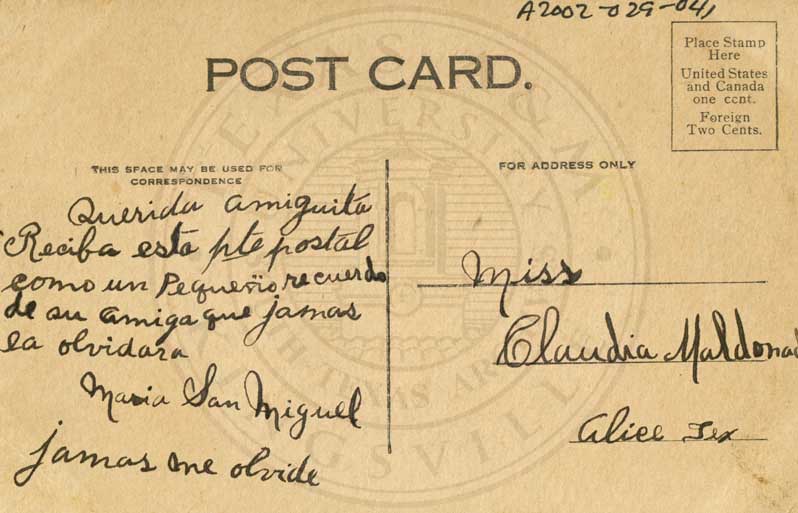 A2002-029-041
POST CARD.
Place Stamp
Here
United States
and Canada
one cent.
Foreign
Two Cents.
THIS SPACE MAY BE USED FOR
CORRESPONDENCE
Querida amiguita
Reciba esta pte postal
como un Pequeño recuerdo
de su amiga que jamas
la olvidara
Maria San Miguel
jamas me olvide
FOR ADDRESS ONLY
Miss
Claudia Maldonad
Alice Tex
TEXAS A&M
UNIVERSITY
SOUTH TEXAS ARCHIVES
KINGSVILLE